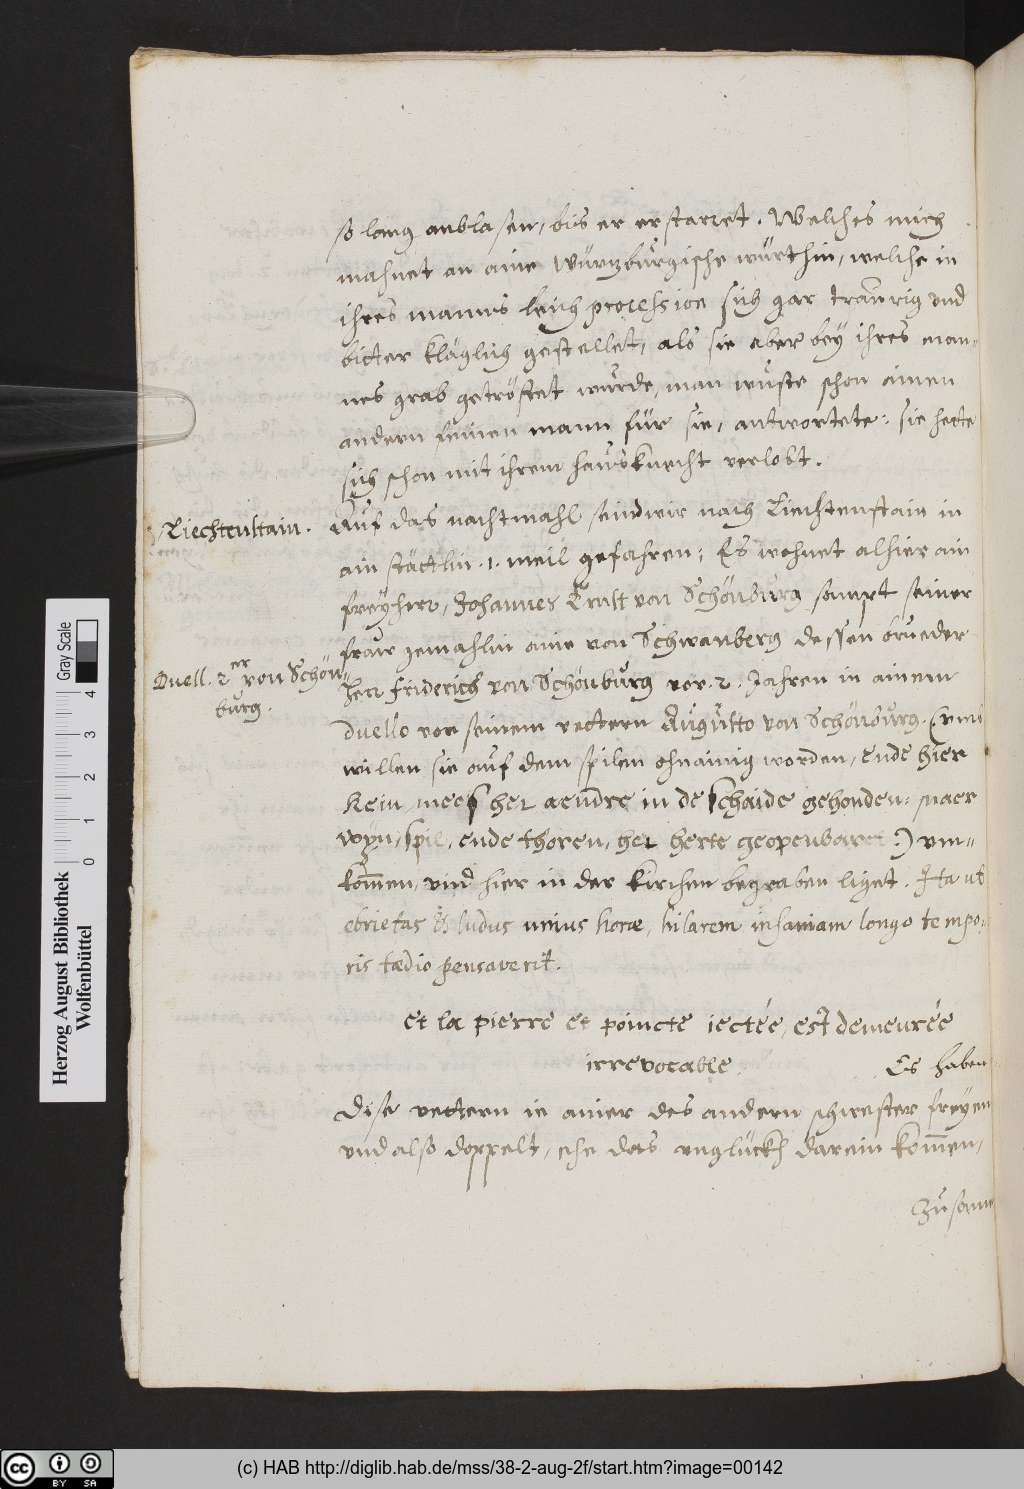 so lang anblasen, bis er erstarret. Welches mich
mahnet an aine Würtzburgische würthin, welche in
ihres manns leich procession sich gar traurig vnd
bitter kläglich gestellet, als sie aber bey ihres man-
nes grab getröstet wurde, man wuste schon ainen
andern feinen mann für sie, antwortete: sie hette
sich schon mit ihrem hausknecht verlobt.
Liechtenstain.
Auf das nachtmahl seind wir nach Liechtenstain in
ain stättlin .1. meil gefahren; Es wohnet alhier ain
freyherr, Johannes Ernst von Schönburg sampt seiner
fraw gemahlin aine von Schwanberg dessen brueder
Duell. 2er von Schön-
burg.
Herr Friderich von Schönburg vor .2. Jahren in ainem
Duello von seinem vettern Augusto von Schönburg. (vmb
willen sie auf dem spilen ohnainig worden, ende hier
Kein mes het aendre in de schaide gehouden: maer
wyn, spil, ende thoren, het herte geopenbaret:) vm-
kom̄en, vnd hier in der kirchen begraben liget. Ita ut
ebrietas & ludus unius horæ, hilarem insaniam longo tempo-
ris tædio pensaverit.
et la pierre et poincte iectée, est demeurée
irrevocable.
Es haben
Dise vettern ie ainer des andern schwester freyen
vnd also doppelt, ehe das vnglückh darein kom̄en,
Zusam̄
Herzog August Bibliothek
Wolfenbüttel
0 1 2 3 4
Gray Scale
cc BY SA
(c) HAB http://diglib.hab.de/mss/38-2-aug-2f/start.htm?image=00142